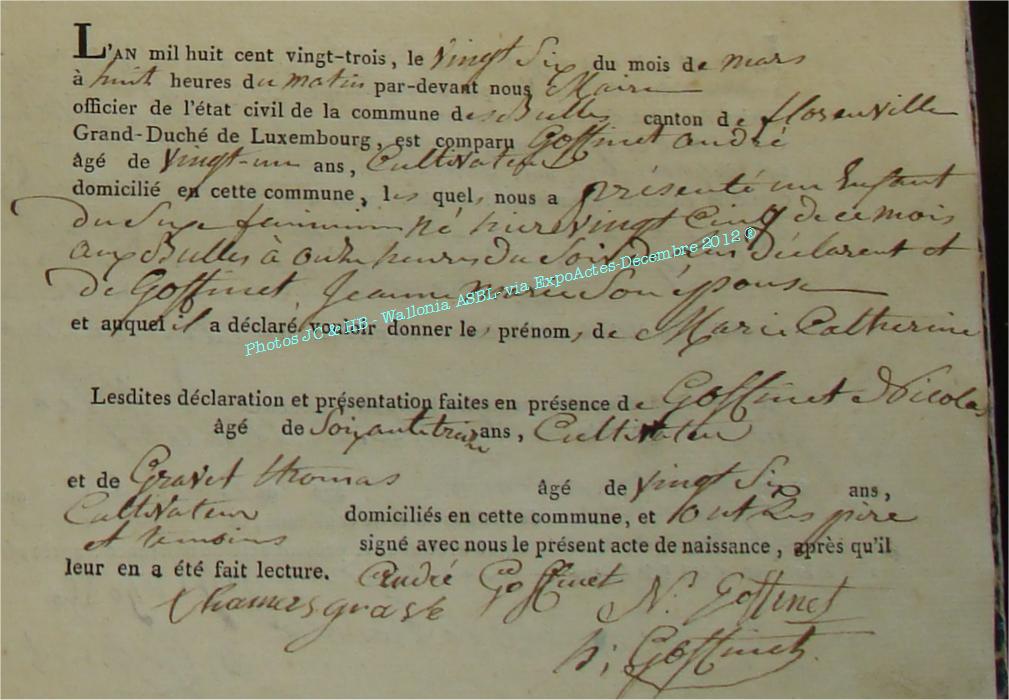 L'AN mil huit cent vingt-trois, le vingt Six du mois de mars
à huit heures du matin par-devant nous Maire
officier de l'état civil de la commune des Bulles canton de florenville
Grand-Duché de Luxembourg, est comparu Goffinet andré
âgé de vingt-un ans, Cultivateur
domicilié en cette commune, les quel, nous a présenté un Enfant
du Sexe feminin né hiere vingt Cinq de ce mois
aux Bulles à onze heures du Soir de lui déclarent et
de Goffinet Jeanne marie Son épouse
et auquel il a déclaré vouloir donner les prénoms de Marie Catherine
Photos JC & HB - Wallonia ASBL- via ExpoActes-Decembre 2012 ®
Lesdites déclaration et présentation faites en présence de Goffinet Nicolas
âgé de Soixante treize ans, Cultivateur
et de Gravet thomas âgé de vingt Six ans,
Cultivateur domiciliés en cette commune, et ont Les père
et temoins signé avec nous le présent acte de naissance, après qu'il
leur en a été fait lecture. André Goffinet
N. Goffinet
h: Goffinet